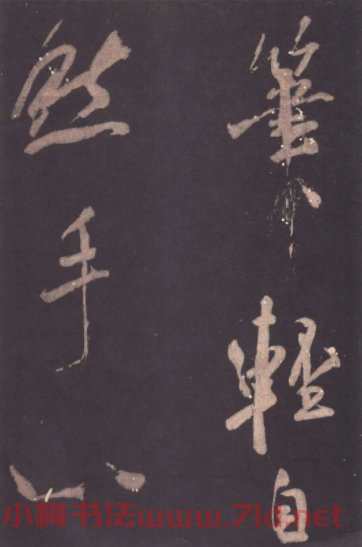 筆輕自
然手心
小梅书法www.7ld.net